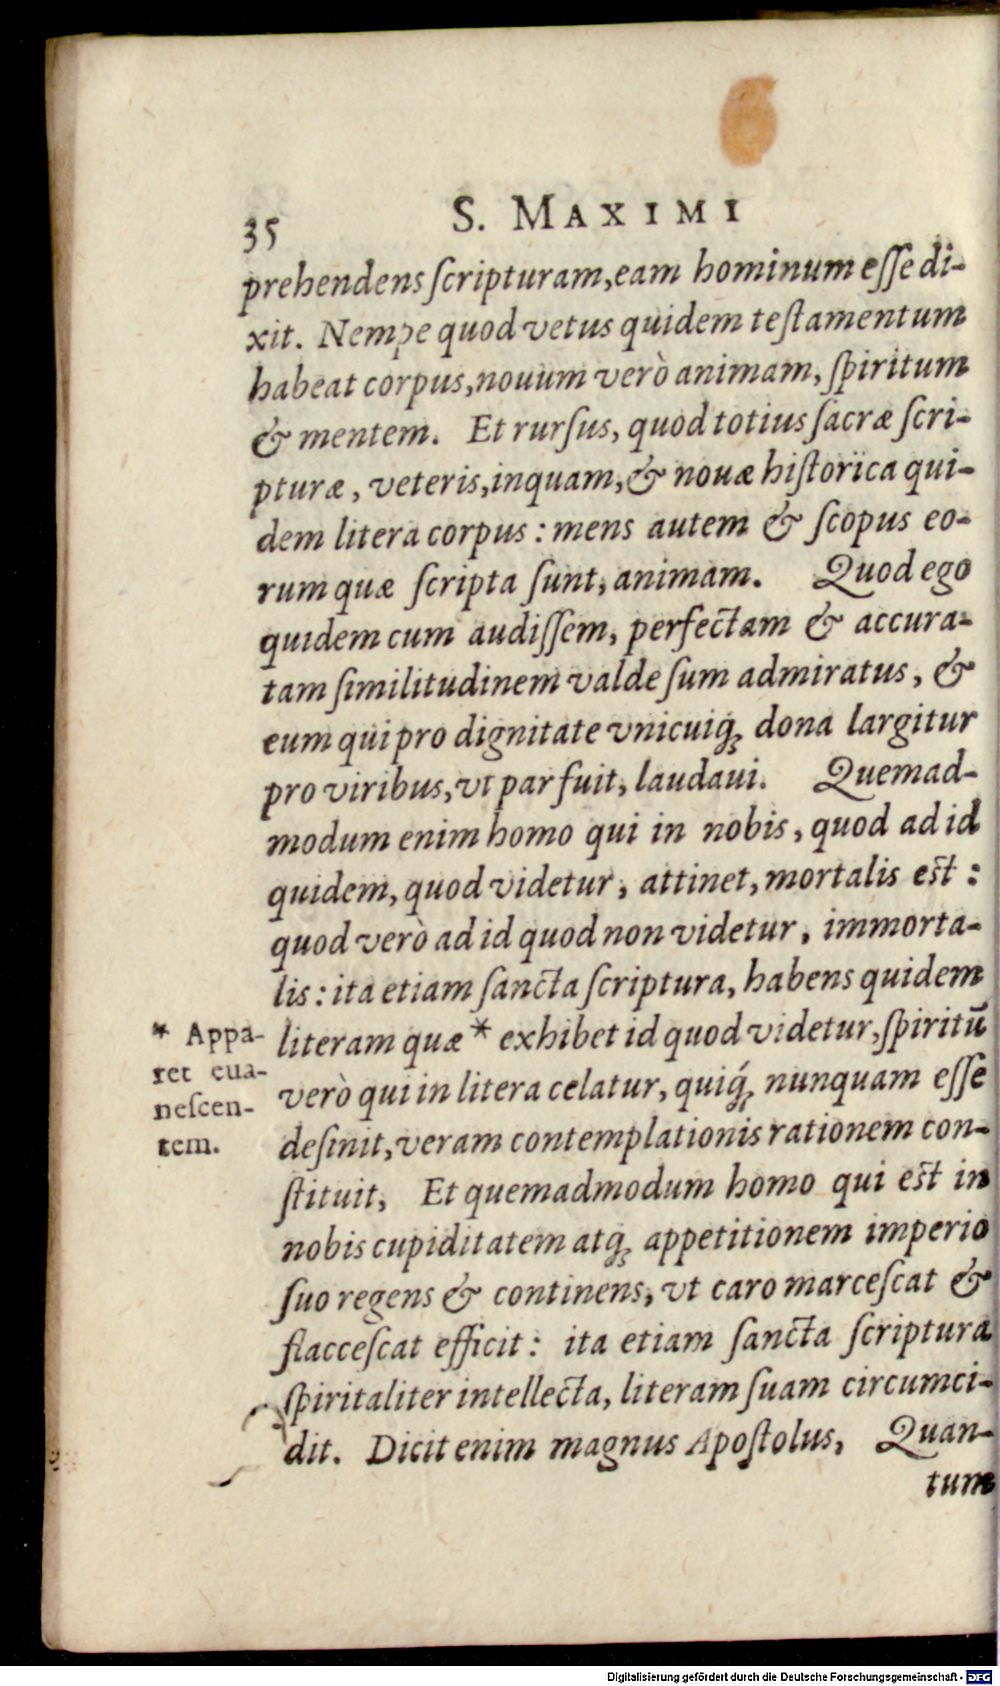 35 S. MAXIMI
prehendens ſcripturam, eam hominum eſſe di-
xit. Nempe quod vetus quidem teſtamentum
habeat corpus, nouum verò animam, ſpiritum
& mentem. Et rurſus, quod totius ſacræ ſcri-
pturæ, veteris, inquam, & nouæ hiſtorica qui-
dem litera corpus: mens autem & ſcopus eo-
rum quæ ſcripta ſunt, animam. Quod ego
quidem cum audiſſem, perfectam & accura-
tam ſimilitudinem valde ſum admiratus, &
eum qui pro dignitate vnicuiq́; dona largitur
pro viribus, vt par fuit, laudaui. Quemad-
modum enim homo qui in nobis, quod ad id
quidem, quod videtur, attinet, mortalis est:
quod verò ad id quod non videtur, immorta-
lis: ita etiam ſancta ſcriptura, habens quidem
literam quæ * exhibet id quod videtur, ſpiritū
verò qui in litera celatur, quiq́; nunquam eſſe
deſinit, veram contemplationis rationem con-
ſtituit, Et quemadmodum homo qui est in
nobis cupiditatem atq; appetitionem imperio
ſuo regens & continens, vt caro marceſcat &
flacceſcat efficit: ita etiam ſancta ſcriptura
ſpiritaliter intellecta, literam ſuam circumci-
dit. Dicit enim magnus Apoſtolus, Quan-
tum
* Appa-
ret eua-
neſcen-
tem.
Digitalisierung gefördert durch die Deutsche Forschungsgemeinschaft - DFG